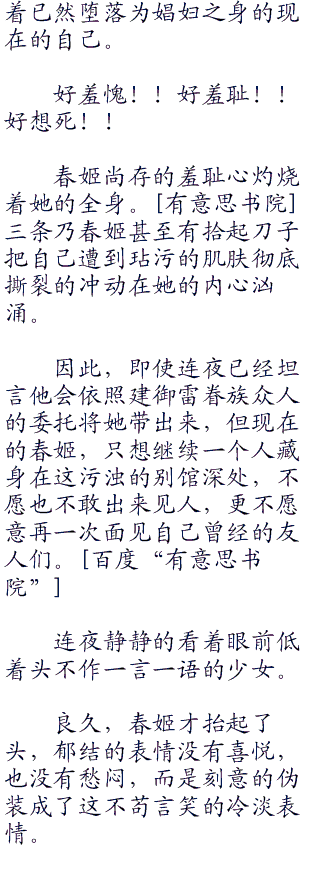 着已然堕落为娼妇之身的现
在的自己。
好羞愧！！好羞耻！！
好想死！！
春姬尚存的羞耻心灼烧
着她的全身。[有意思书院]
三条乃春姬甚至有拾起刀子
把自己遭到玷污的肌肤彻底
撕裂的冲动在她的内心汹
涌。
因此，即使连夜已经坦
言他会依照建御雷眷族众人
的委托将她带出来，但现在
的春姬，只想继续一个人藏
身在这污浊的别馆深处，不
愿也不敢出来见人，更不愿
意再一次面见自己曾经的友
人们。[百度“有意思书
院”]
连夜静静的看着眼前低
着头不作一言一语的少女。
良久，春姬才抬起了
头，郁结的表情没有喜悦，
也没有愁闷，而是刻意的伪
装成了这不苟言笑的冷淡表
情。